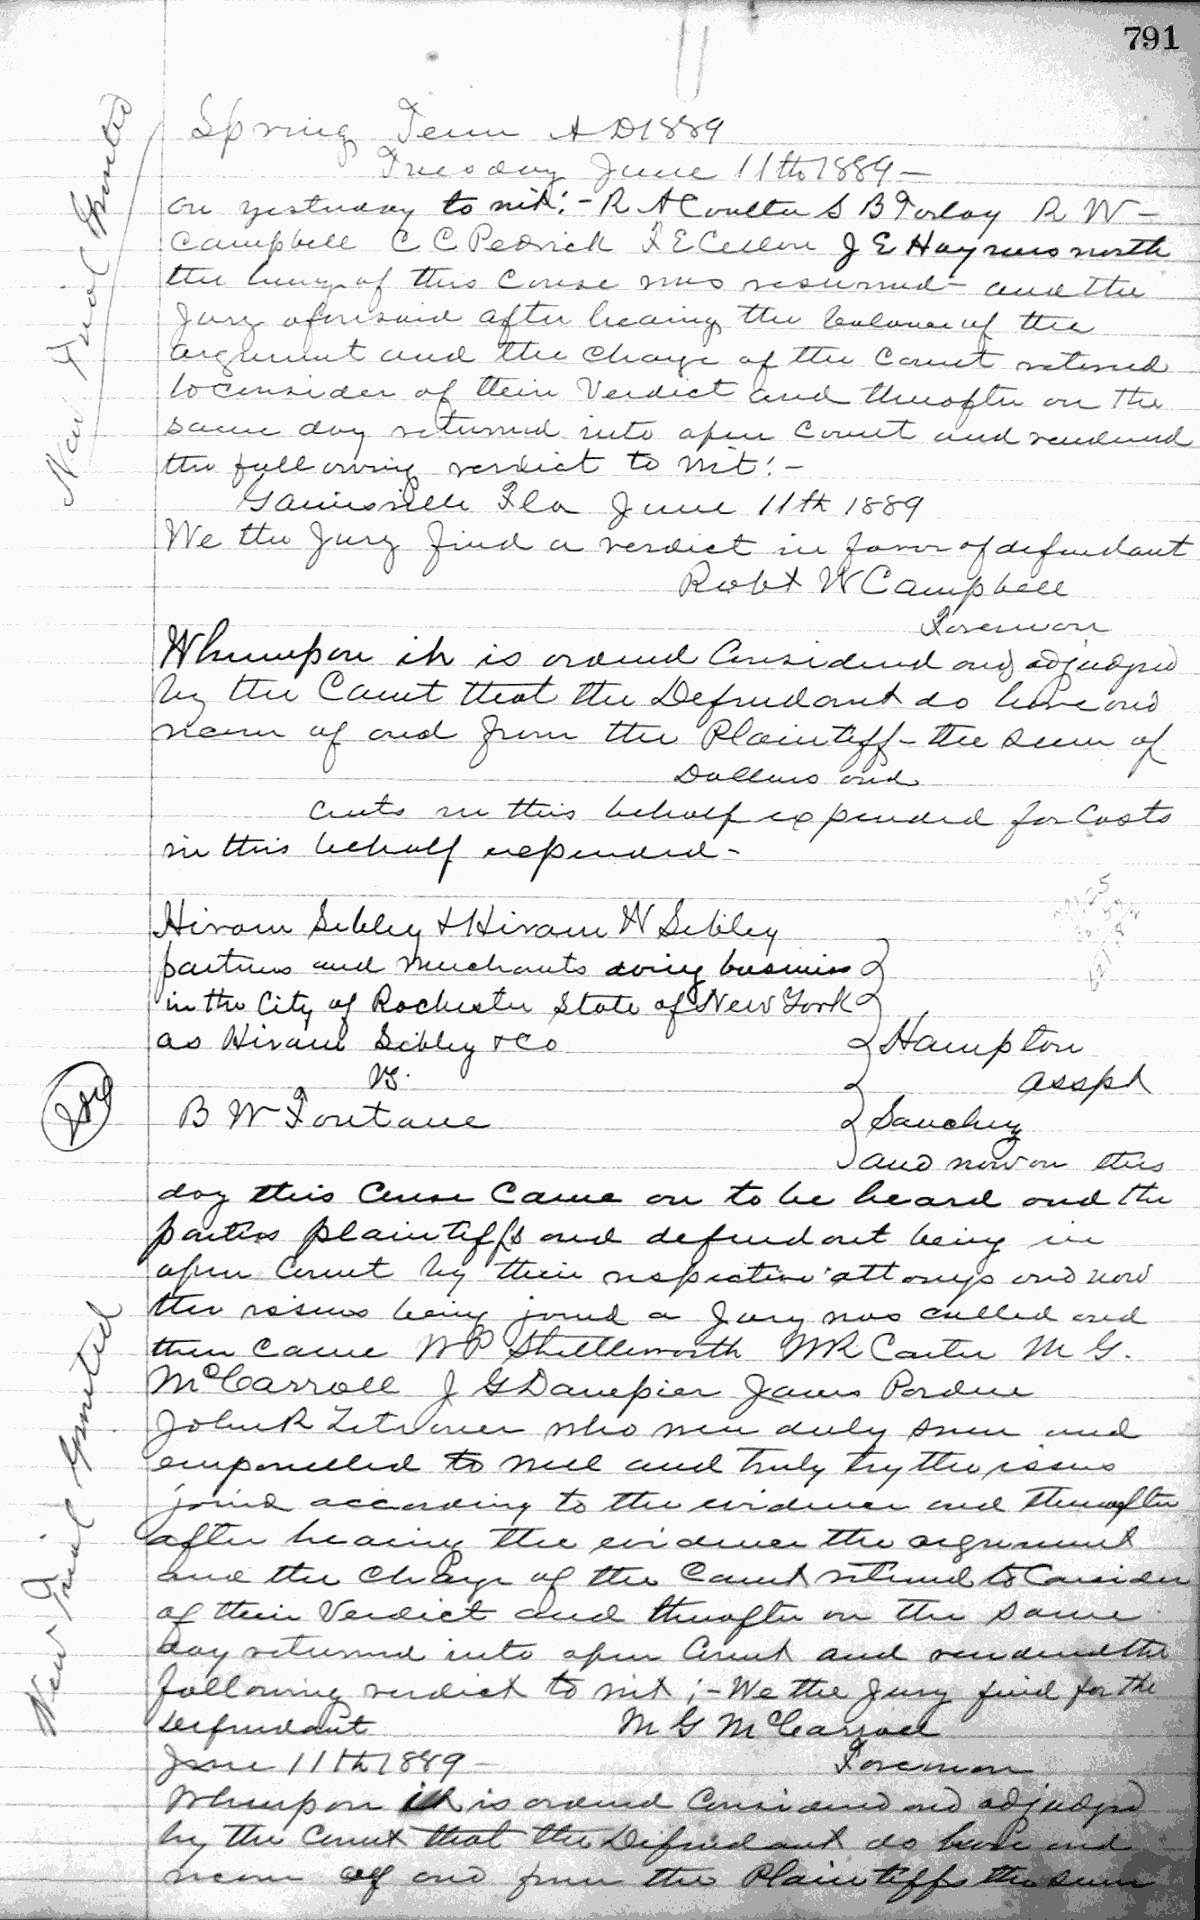 791
Spring Term A D 1889
Tuesday June 11th 1889 -
New Trial Granted
on yesterday to wit: - R A Coulter S B Torlay R W -
Campbell C C Pedrick F E Cellon J E Haynsworth
the hearing of this Cause was resumed - and the
Jury aforesaid after hearing the balance of the
argument and the Charge of the Court retired
to consider of their Verdict and thereafter on the
same day returned into open Court and rendered
the following verdict to wit: -
Gainesville Fla June 11th 1889
We the Jury find a verdict in favor of defendant
Robt W Campbell
Foreman
Whereupon it is ordered Considered and adjudged
by the Court that the Defendant do have and
recover of and from the Plaintiff - the sum of
Dollars and
cents in this behalf expended for Costs
in this behalf expended -
Hiram Sibley & Hiram W Sibley
partners and Merchants doing business
in the City of Rochester State of New York
as Hiram Sibley & Co
Hampton
vs.
Asspt
B W Fontane
Sanchez
and now on this
day this Cause Came on to be heard and the
parties plaintiffs and defendant being in
open Court by their respective attorneys and now
the issues being joined a Jury was called and
then came W P Shettleworth W R Carter M G.
McCarroll J G Dampier James Pardue
John R who were duly sworn and
empanelled to well and truly try the issues
joined according to the evidence and thereafter
after hearing the evidence the argument
and the Charge of the Court retired to Consider
of their Verdict and thereafter on the same
day returned into open Court and rendered the
following verdict to wit; - We the Jury find for the
Defendant M G McCarroll
June 11th 1889 - Foreman
New Trial Granted
Whereupon it is ordered Considered and adjudged
by the Court that the Defendant do have and
recover of and from the Plaintiffs the sum